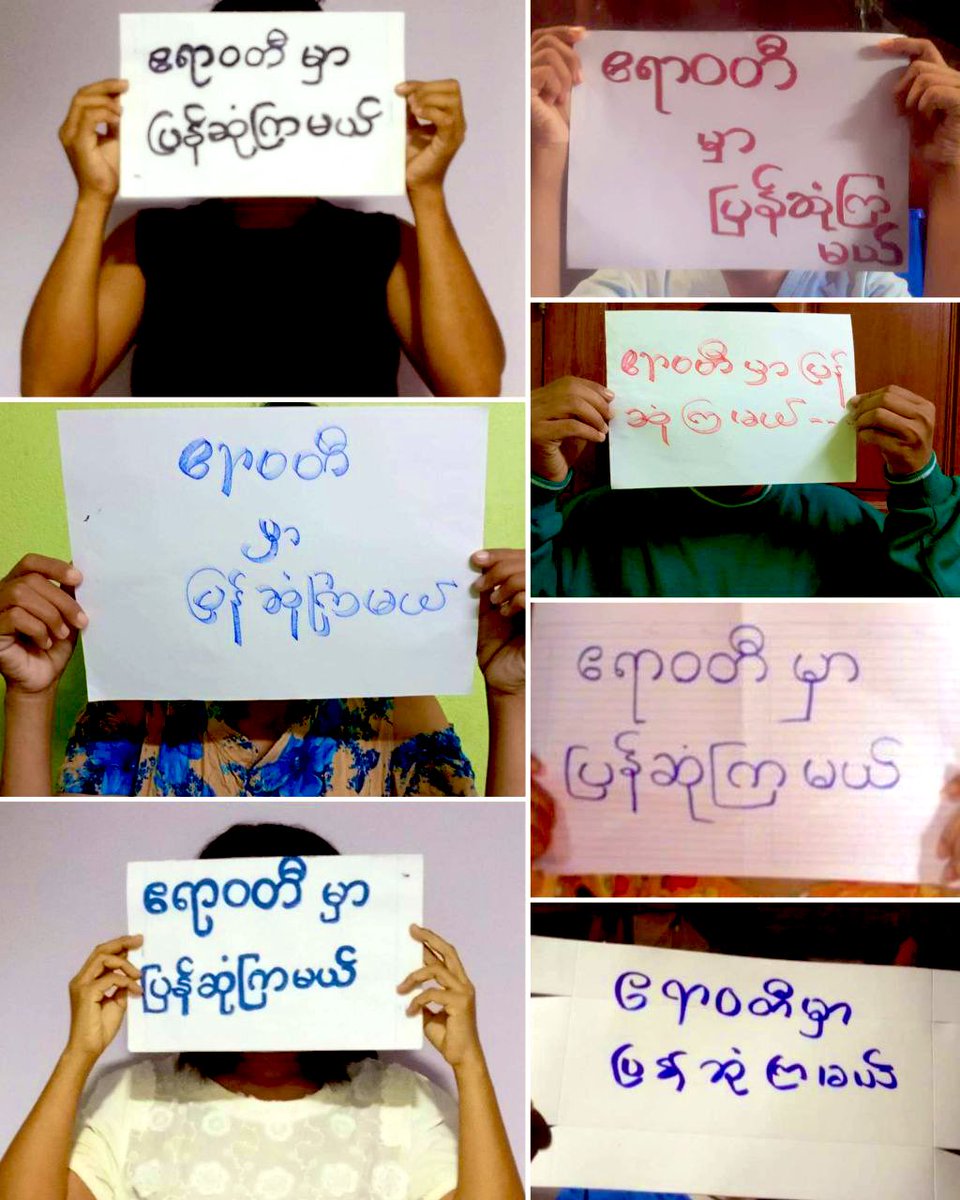 ဧရာဝတီ မှာ
ပြန်ဆုံကြမယ်
ဧရာဝတီ
မှာ
ပြန်ဆုံကြ
မယ်
ဧရာဝတီ
မှာ
ပြန်ဆုံကြမယ်
ဧရာဝတီ မှာ ပြန်
ဆုံ ကြ မယ် - - -
ဧရာဝတီ မှာ
ပြန်ဆုံကြ မယ်
ဧရာဝတီ မှာ
ပြန်ဆုံကြမယ်
ဧရာဝတီမှာ
ပြန် ဆုံ ကြ မယ်